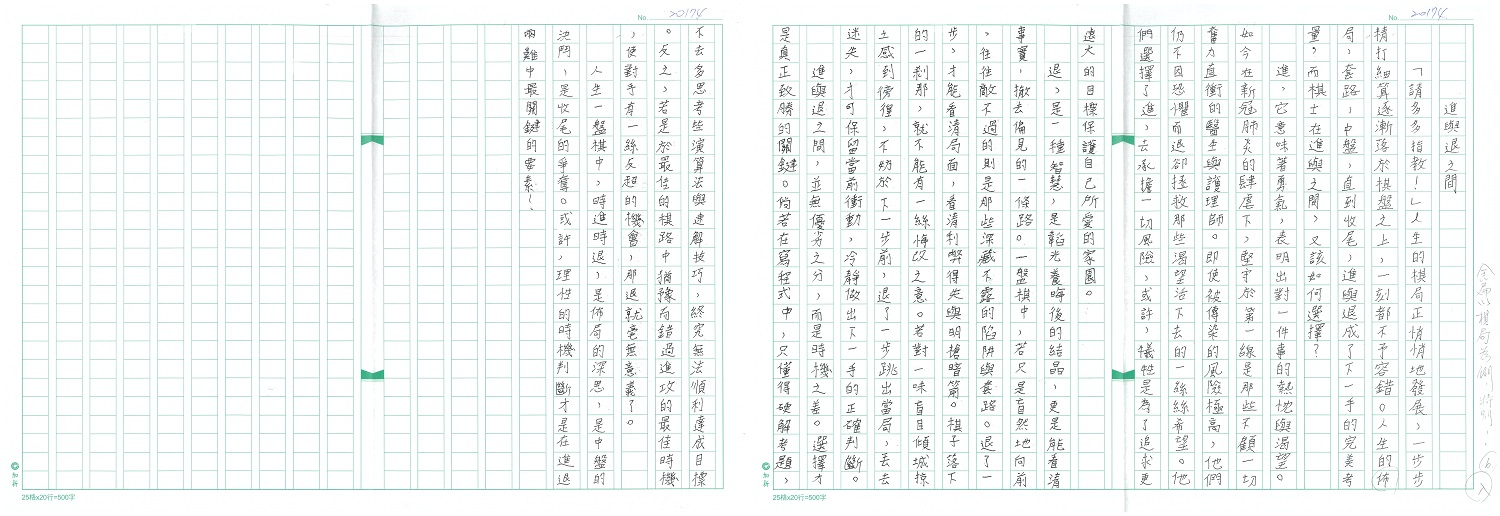 No. 20174
進與退之間
「請多多指教！」人生的棋局正悄悄地發展，一步步
精打細算逐漸落於棋盤之上，一刻都不予容錯。人生的佈
局，套路，中盤，直到收尾，進與退成了下一手的完美考
量，而棋士在進與之間，又該如何選擇？
進，它意味著勇氣，表明出對一件事的熱忱與渴望。
如今在新冠肺炎的肆虐下，堅守於第一線是那些不顧一切
奮力直衝的醫生與護理師。即使被傳染的風險極高，他們
仍不因恐懼而退卻拯救那些渴望活下去的一絲絲希望。他
們選擇了進，去承擔一切風險，或許，犧牲是為了追求更
遠大的目標保護自己所愛的家園。
退，是一種智慧，是韜光養晦後的結晶，更是能看清
事實，撤去偏見的一條路。一盤棋中，若只是盲然地向前
，往往敵不過的則是那些深藏不露的陷阱與套路。退了一
步，才能看清局面，看清利弊得失與明槍暗箭。棋子落下
的一剎那，就不能有一絲悔改之意。若對一味盲目傾城掠
土感到徬徨，不妨於下一步前，退了一步跳出當局，丟去
迷失，才可保留當前衝動，冷靜做出下一手的正確判斷。
進與退之間，並無優劣之分，而是時機之差。選擇才
是真正致勝的關鍵。倘若在寫程式中，只僅得硬解考題，
25格x20行=500字
No. 20174
不去多思考些演算法與速解技巧，終究無法順利達成目標
。反之，若是於最佳的棋路中猶豫而錯過進攻的最佳時機
，使對手有一絲反超的機會，那退就毫無意義了。
人生一盤棋中，時進時退，是佈局的深思，是中盤的
決鬥，是收尾的爭奪。或許，理性的時機判斷才是在進退
兩難中最關鍵的要素！、
25格x20行=500字